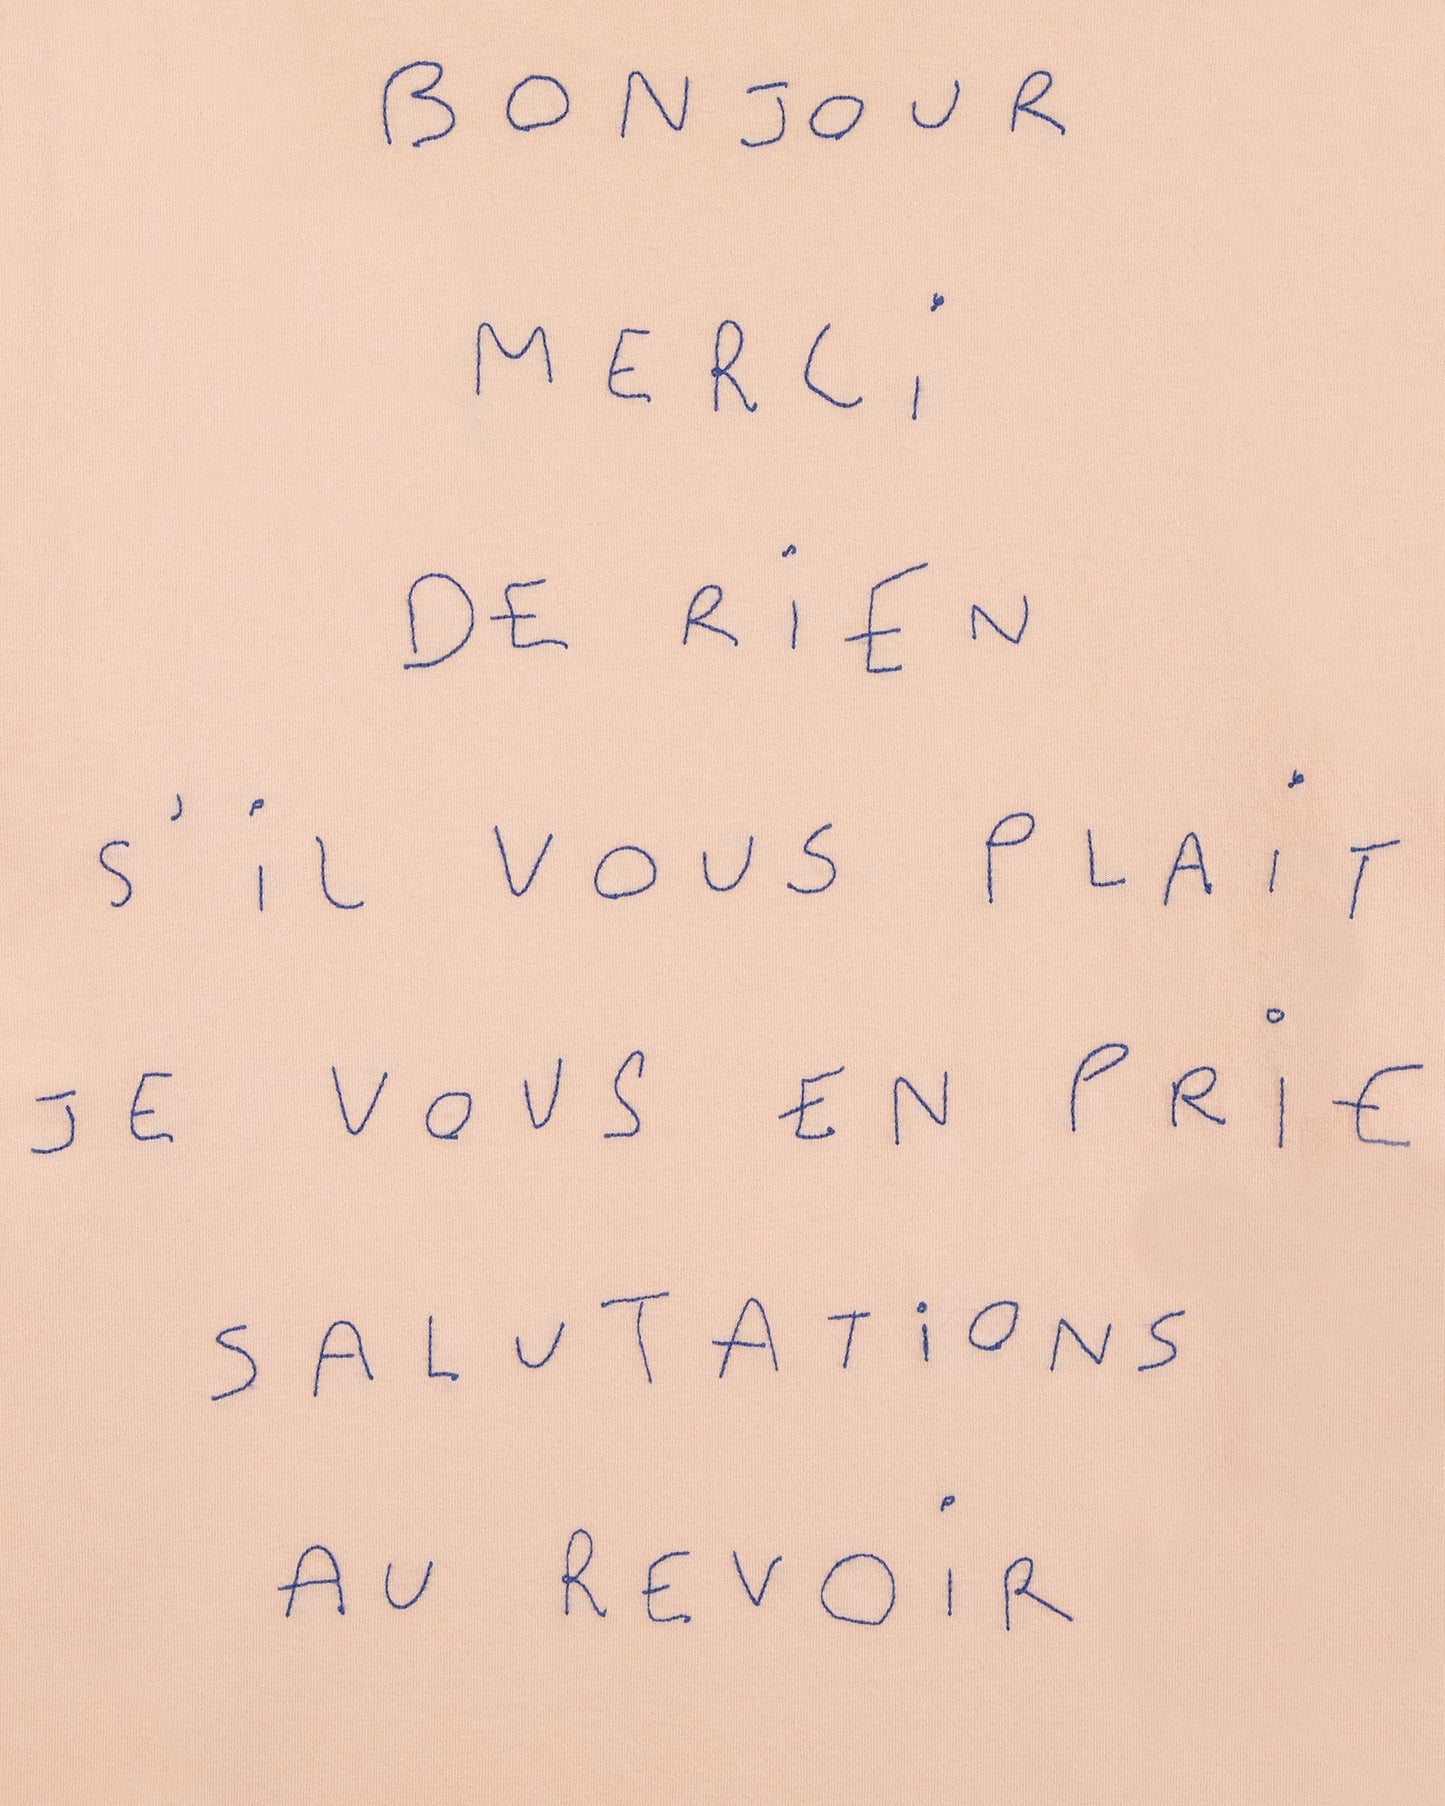 BONJOUR
MERCi
DE RiEN
S'iL VOUS PLAiT
JE VOUS EN PRiE
SALUTATiONS
AU REVOiR